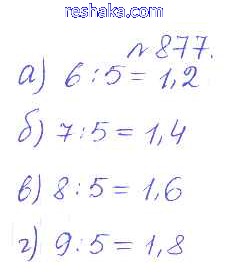 reshaka.com
№ 877.
а) 6 : 5 = 1,2
б) 7 : 5 = 1,4
в) 8 : 5 = 1,6
г) 9 : 5 = 1,8